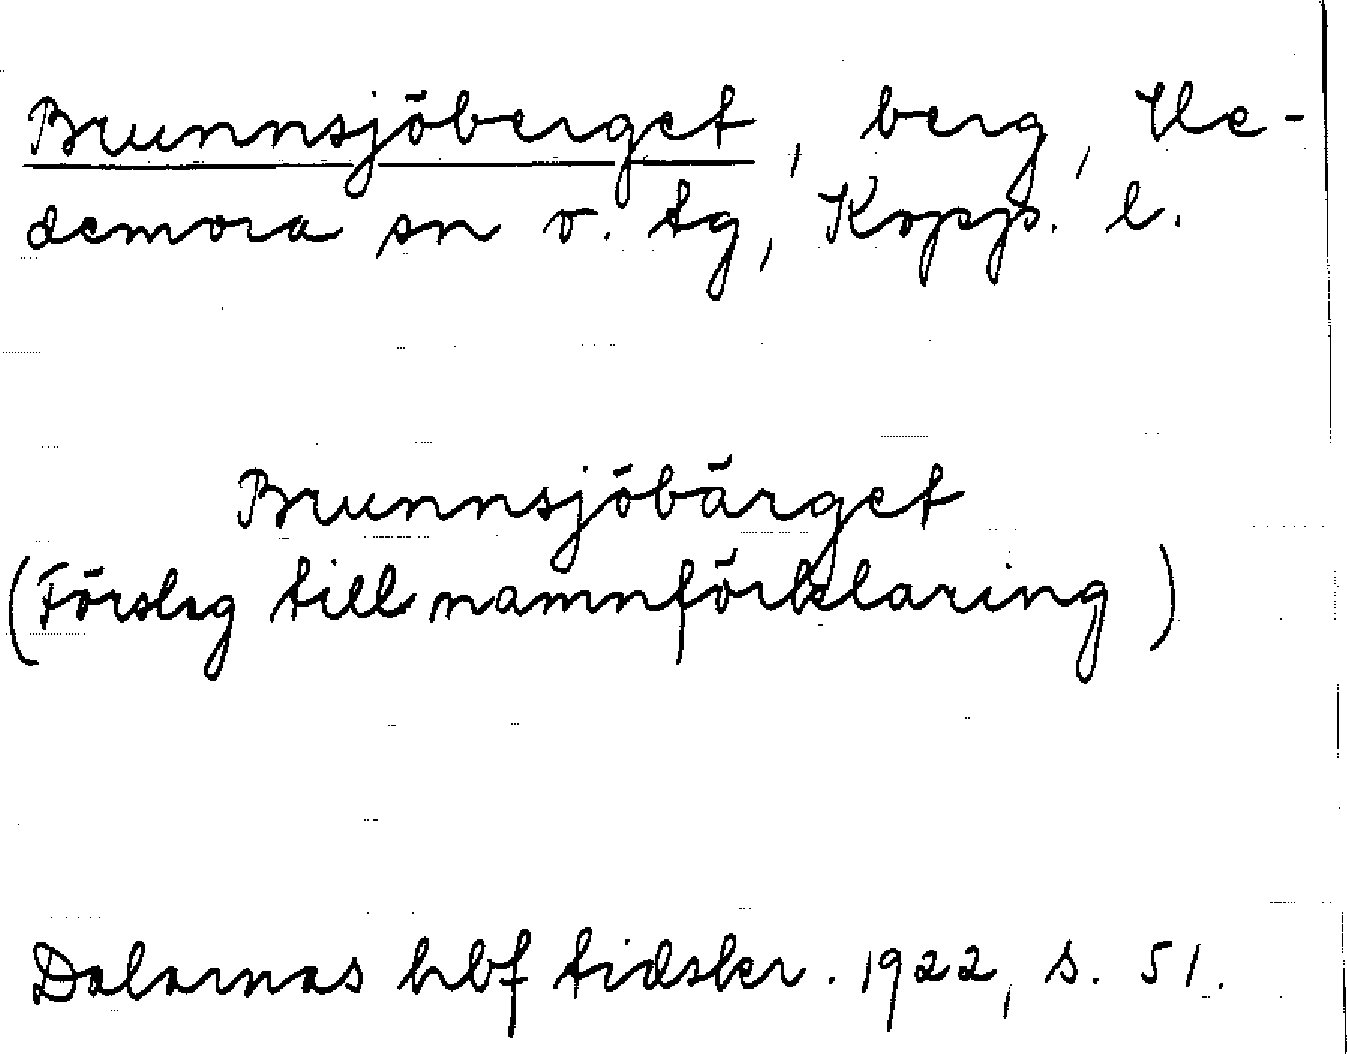 Brunnsjöberget, berg, He-
demora sn o. tg, Kopps. l.
Brunnsjöbärget
(Förslag till namnförklaring)
Dalarnas hbf tidskr. 1922, s. 51.